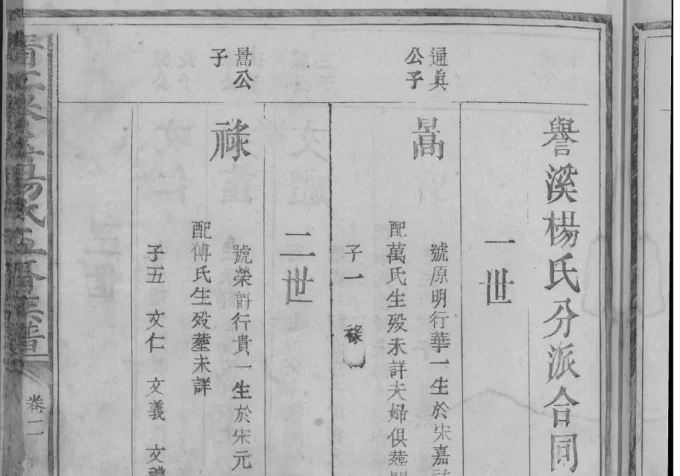 譽溪楊氏分派合同
一世
通真
公子
暠
號原明行華一生於宋嘉
配萬氏生歿未詳夫婦俱塟
子一 祿
二世
暠公
子
祿
號榮爵行貴一生於宋元
配傅氏生歿塟未詳
子五 文仁 文義 文禮
楊氏五修族譜
卷二